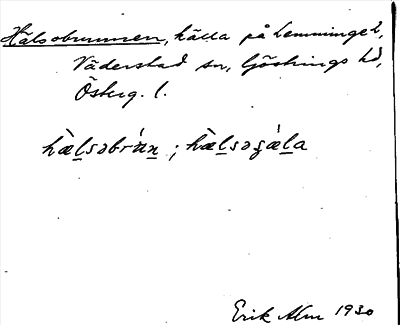 Hälsobrunnen, källa på Lemminge L,
Väderstad sn, Göstrings hd,
Österg. l.
hæ̀lsobrún̠n̠ ; hæ̀l̠sogǽl̠a
Erik Alm 1930